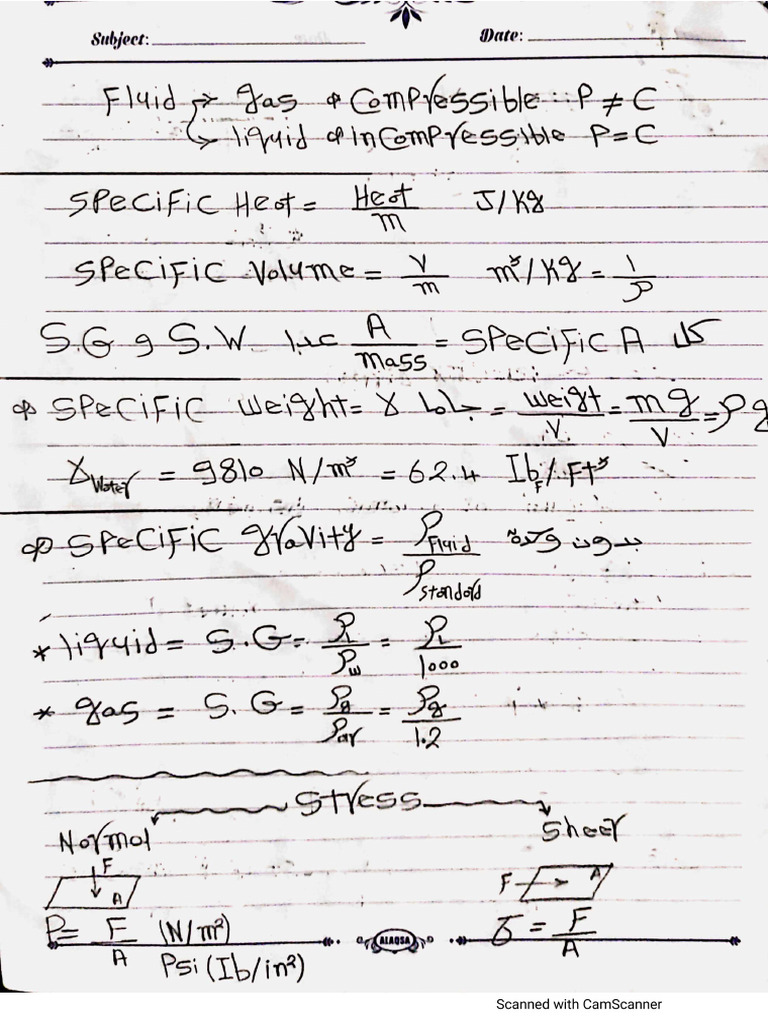 Subject: Date:
Fluid → gas ⇒ Compressible ∴ ρ ≠ C
↳ liquid ⇒ inCompressible ρ = C
SPeCiFiC Heat = Heat/m J/Kg
SPeCiFiC Volume = V/m m³/Kg = 1/ρ
S.G و S.W عدا A/mass = SPeCiFiC A كل
SPeCiFiC weight = γ جاما = weight/V = mg/V = ρg
γwater = 9810 N/m³ = 62.4 IbF/Ft³
SPeCiFiC gravity = ρFluid/ρstandard بدون وحدة
* liquid = S.G = ρL/ρw = ρL/1000
* gas = S.G = ρg/ρair = ρg/1.2
Stress
Normal Sheer
F A F A
P = F/A (N/m²) τ = F/A
Psi (Ib/in²)
ALAQSA
Scanned with CamScanner